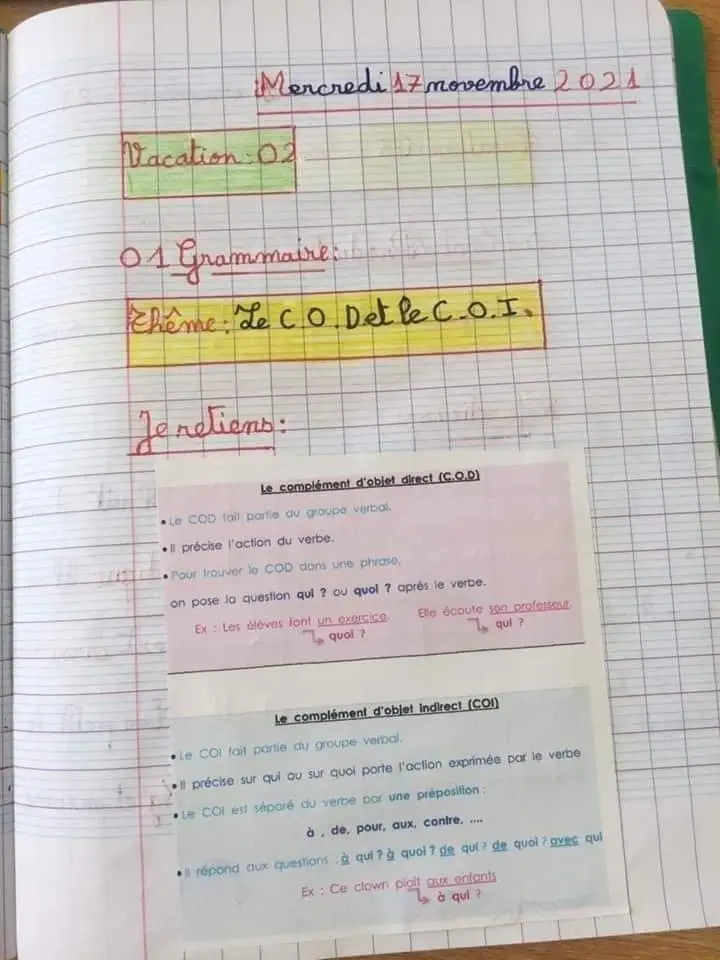 Mercredi 17 novembre 2021
Vacation: 02
01 Grammaire:
Thème: Le C.O.D et le C.O.I.
Je retiens:
Le complément d'objet direct (C.O.D)
• Le COD fait partie du groupe verbal.
• Il précise l'action du verbe.
• Pour trouver le COD dans une phrase,
on pose la question qui ? ou quoi ? après le verbe.
Ex : Les élèves font un exercice. Elle écoute son professeur.
quoi ? qui ?
Le complément d'objet indirect (COI)
• Le COI fait partie du groupe verbal.
• Il précise sur qui ou sur quoi porte l'action exprimée par le verbe
• Le COI est séparé du verbe par une préposition :
à , de, pour, aux, contre, ....
• Il répond aux questions : à qui ? à quoi ? de qui ? de quoi ? avec qui
Ex : Ce clown plaît aux enfants
à qui ?